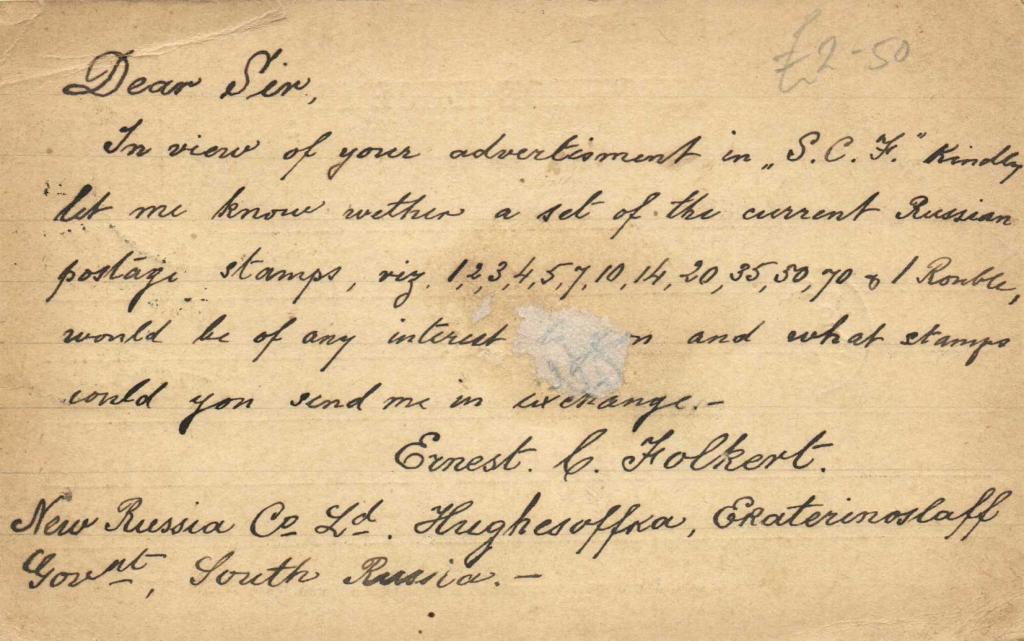 £2-50
Dear Sir,
In view of your advertisment in „S. C. F." Kindly
let me know wether a set of the current Russian
postage stamps, viz. 1,2,3,4,5,7,10,14,20,35,50,70 & 1 Rouble,
would be of any interest and what stamps
could you send me in exchange.-
Ernest. C. Folkert.
New Russia Co Ld. Hughesoffka, Ekaterinoslaff
Govnt, South Russia.-